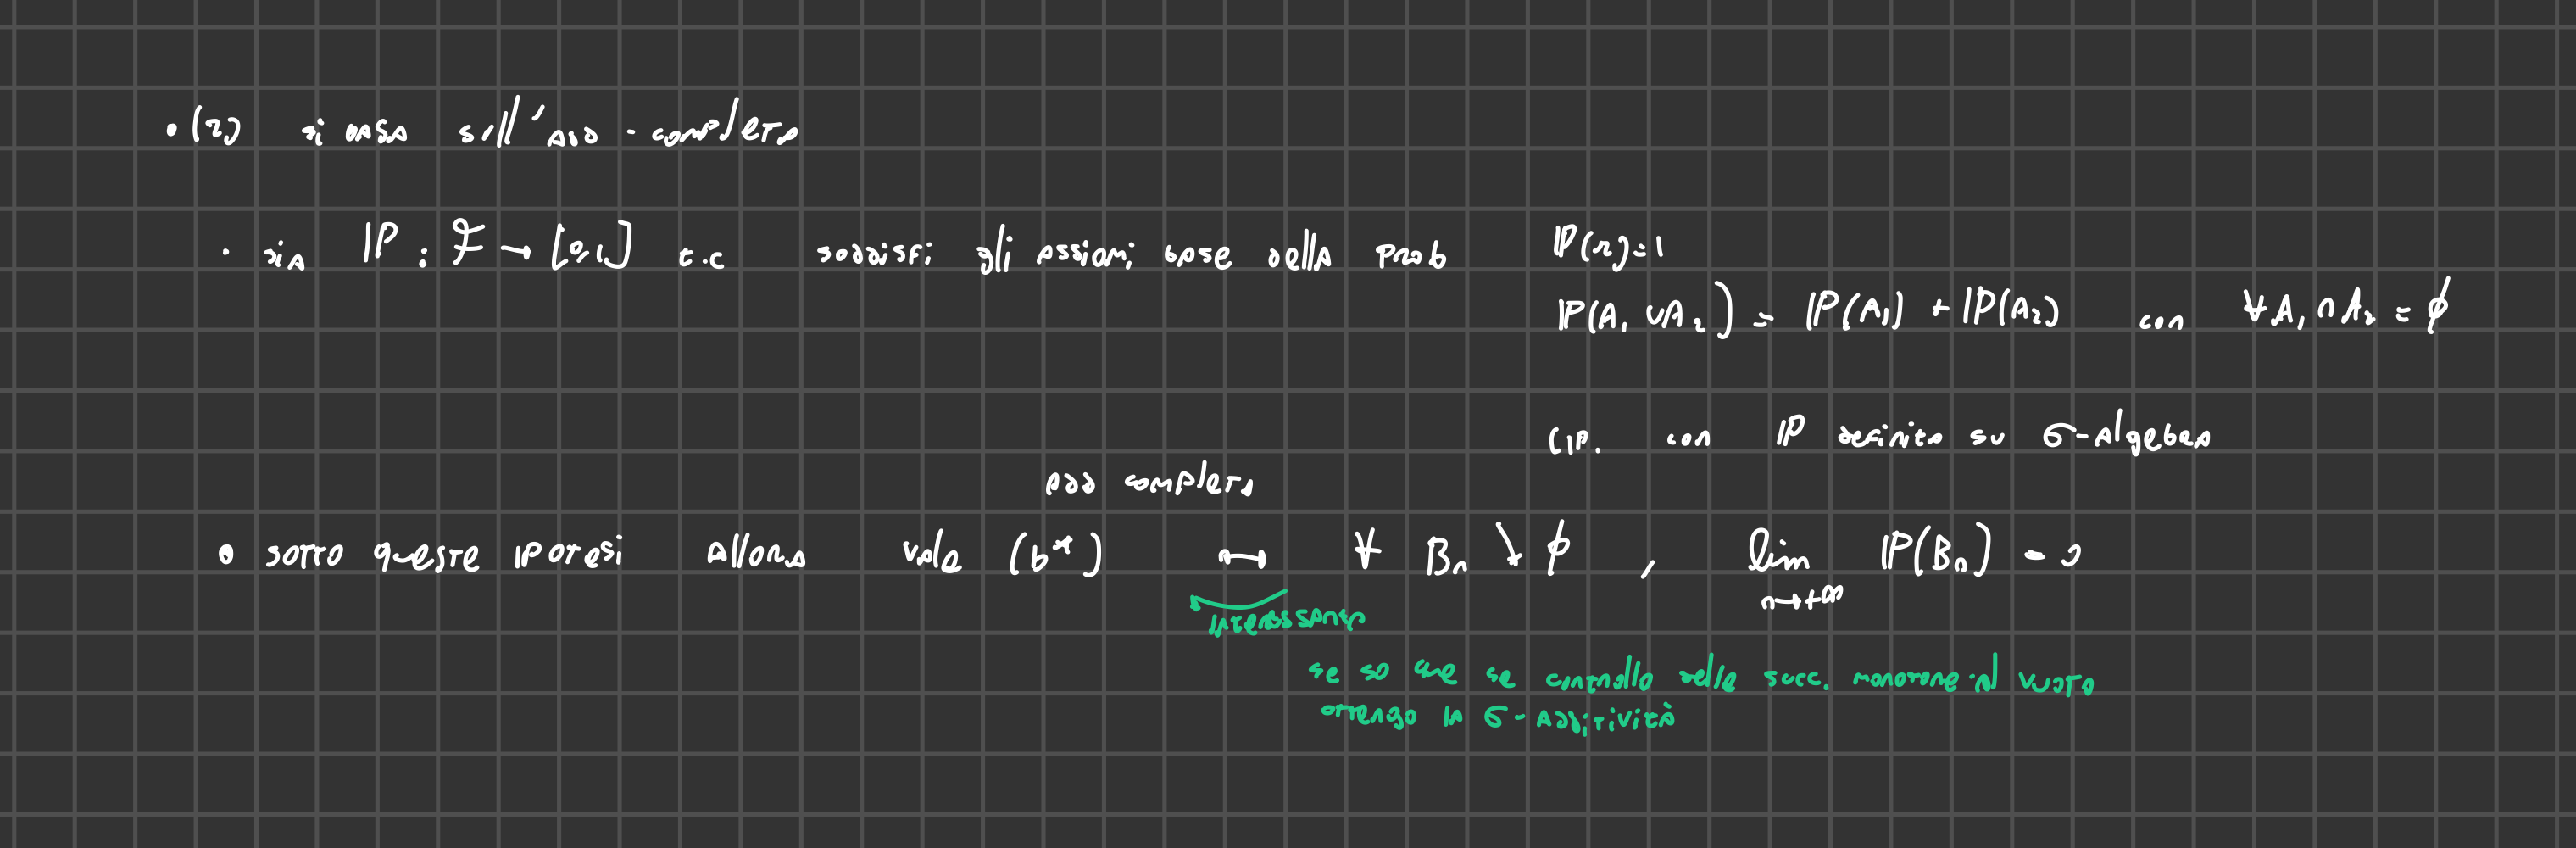 • (2) si basa sull'add-completa
• sia ℙ : ℱ → [0,1] t.c soddisfi gli assiomi base della prob
ℙ(Ω)=1
ℙ(A₁ ∪A₂) = ℙ(A₁) + ℙ(A₂) con ∀A₁∩A₂ = ∅
(ip. con ℙ definita su σ-algebra
add completa
• sotto queste ipotesi allora vale (b*) ↔ ∀ Bₙ ↘ ∅ , lim ℙ(Bₙ) = 0
n→+∞
interessante
se so che se controllo delle succ. monotone al vuoto
ottengo la σ-additività